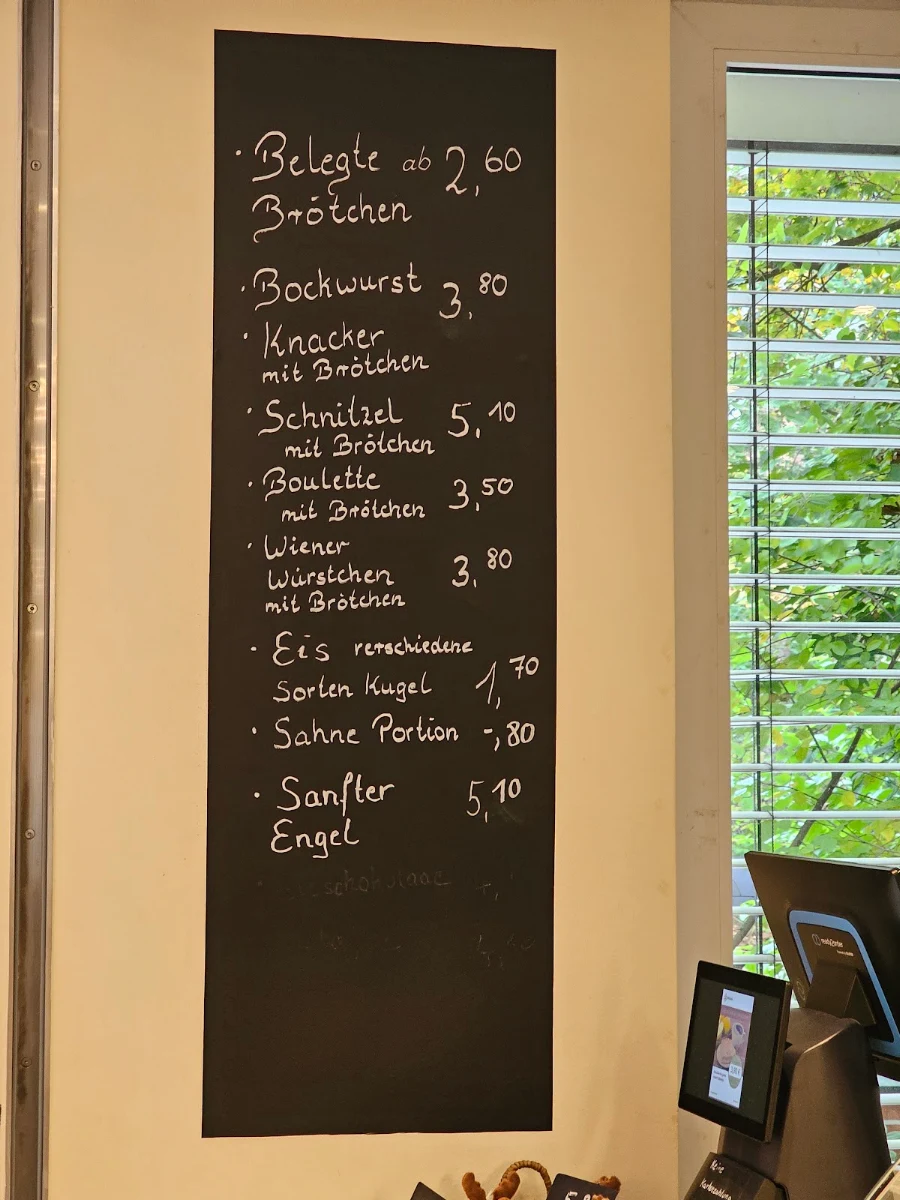 · Belegte ab 2,60
Brötchen
· Bockwurst 3,80
· Knacker
mit Brötchen
· Schnitzel 5,10
mit Brötchen
· Boulette 3,50
mit Brötchen
· Wiener
Würstchen 3,80
mit Brötchen
· Eis verschiedene
Sorten Kugel 1,70
· Sahne Portion -,80
· Sanfter 5,10
Engel
ready2order
Keine
Kartenzahlung